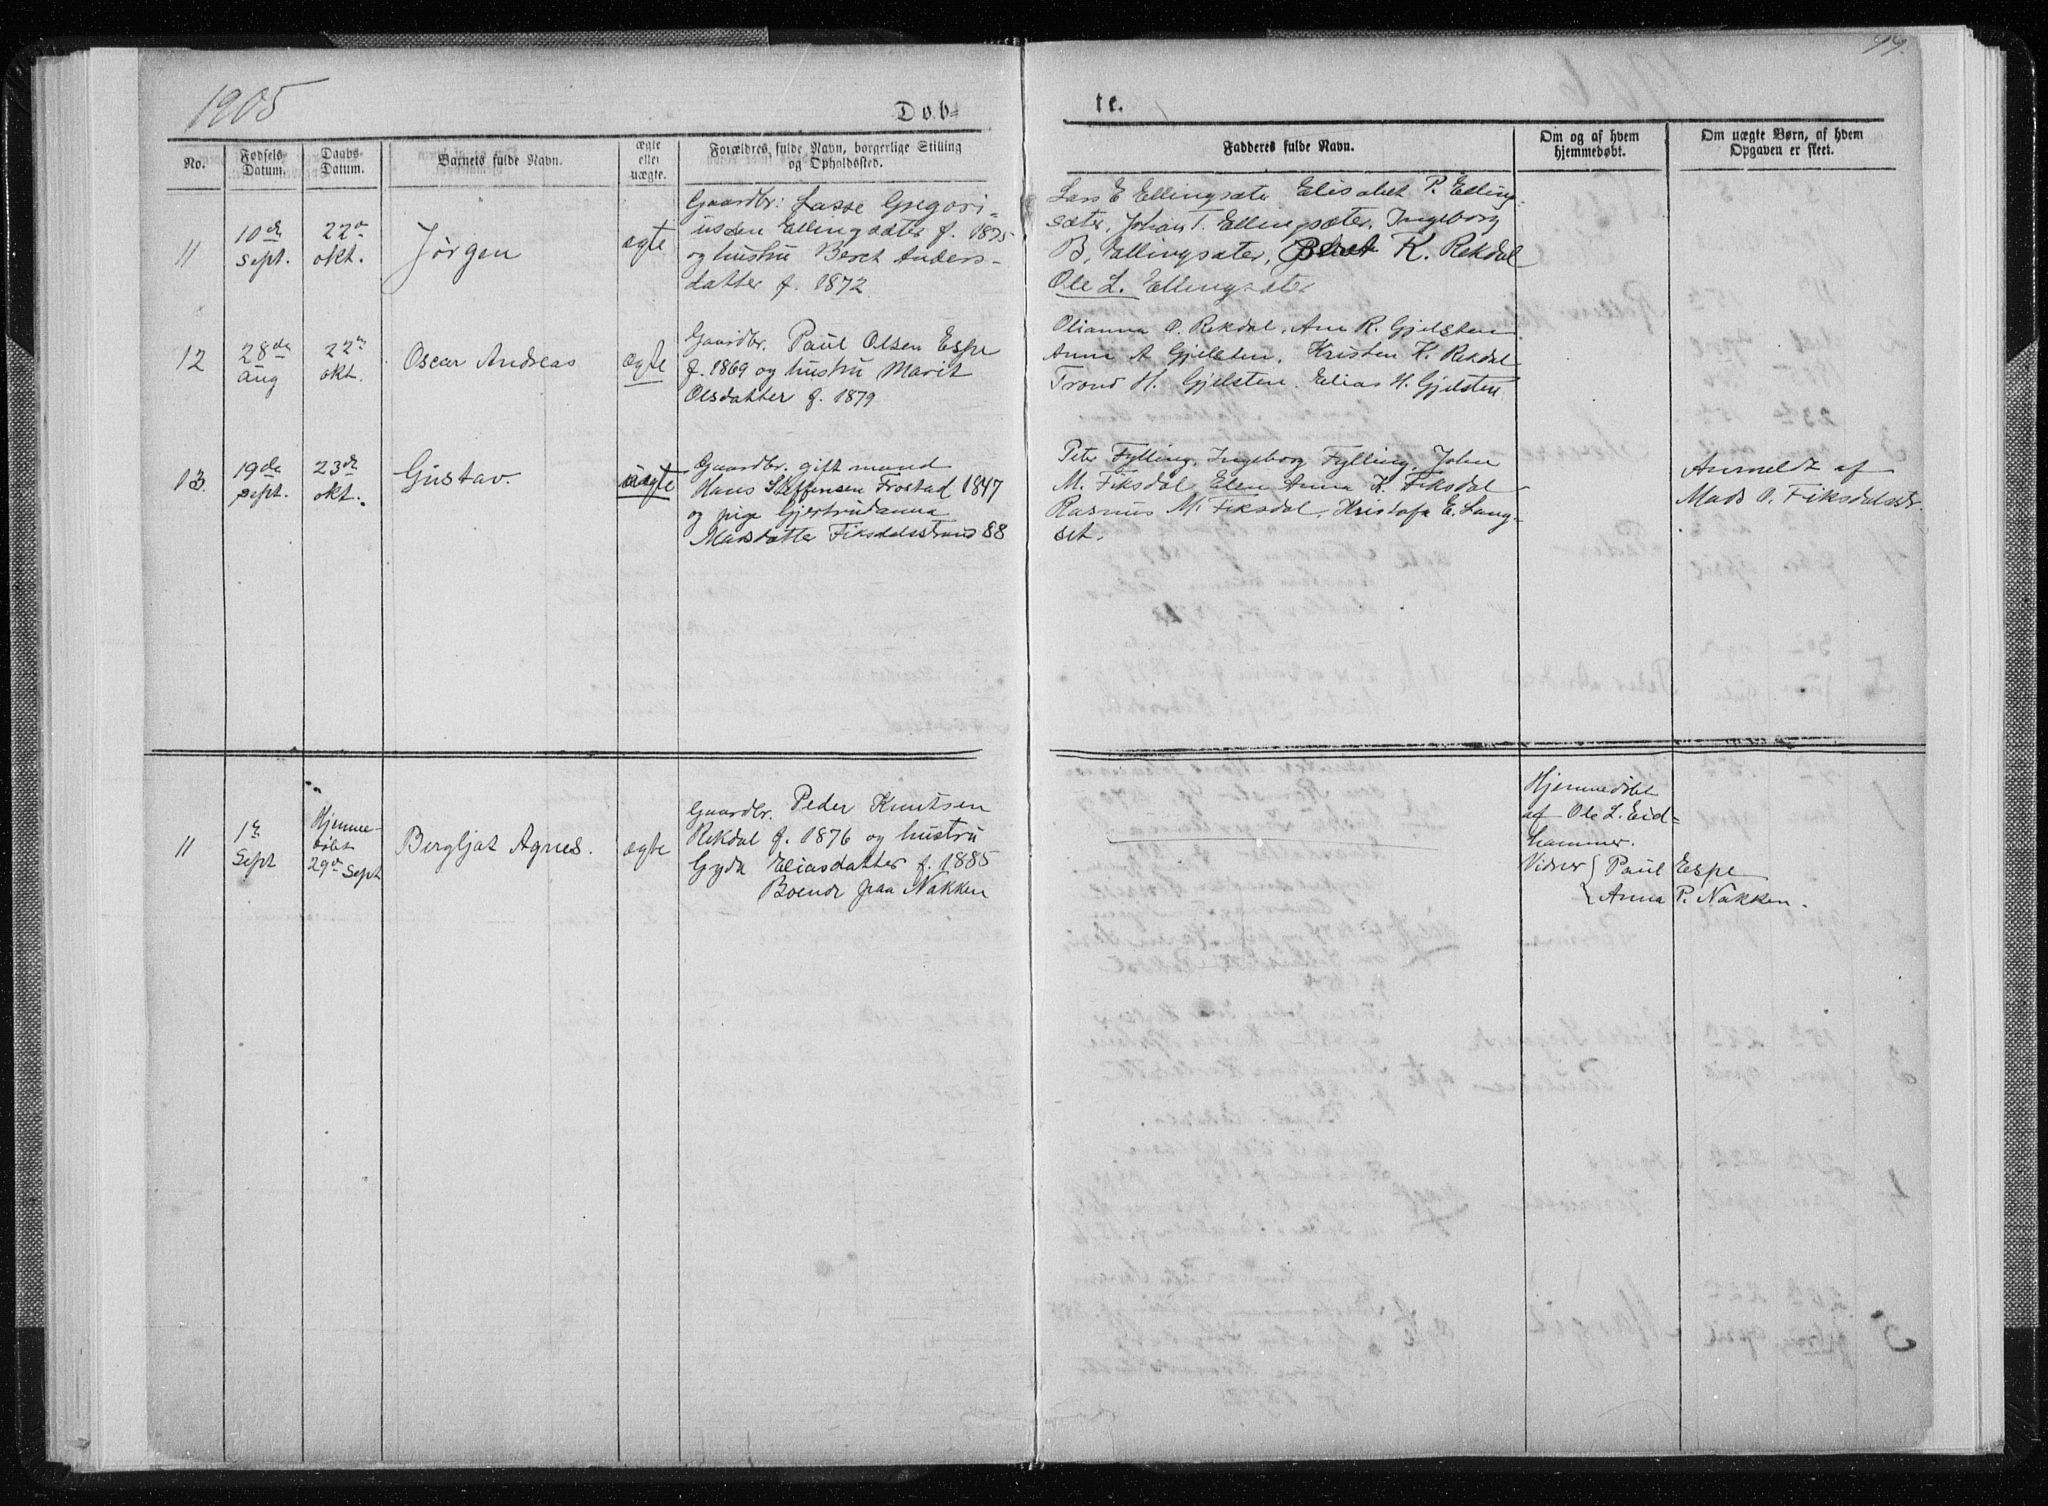 1905
Døb-
te.
99.
No.
Fødsels Datum.
Daabs-Datum.
Barnets fulde Navn.
ægte eller uægte.
Forældres fulde Navn, borgerlige Stilling
og Opholdssted.
Fadderes fulde Navn.
Om og af hvem
hjemmedøbt.
Om uægte Børn, af hvem
Opgaven er skeet.
11
10de
sept.
22de
okt.
Jørgen
ægte
Gaardbr: Lasse Gregori-
ussen Ellingsæter f. 1875
og hustru Beret Anders-
datter f. 1872
Lars E Ellingsæter Elisabet P. Elling-
sæter, Johan T. Ellingsæter, Ingeborg
B. Ellingsæter, Beret K. Rekdal
Ole L. Ellingsæter
12
28de
aug
22de
okt.
Oscar Andreas
ægte
Gaardbr. Paul Olsen Espe
f. 1869 og hustru Marit
Olsdatter f. 1879
Olianna O. Rekdal, Ane R. Gjelsten
Anne A Gjelsten, Kristen K. Rekdal
Trond H. Gjelsten, Elias H. Gjelsten
13.
19de
sept.
23de
okt.
Gustav.
uægte
Gaardbr. gift mand
Hans Steffensen Frostad 1847
og pige Gjertrudanna
Madsdatter Fiksdalsstrand 88
Peter Fylling, Ingeborg Fylling, John
M. Fiksdal Elen Anna K. Fiksdal
Rasmus M. Fiksdal, Kristofa E. Lang-
set.
Anmeldt af
Mads O. Fiksdalsstr.
11
1ste
Sept
Hjemme-
døbt
29de Sept
Bergljot Agnes.
ægte
Gaardbr. Peder Knutsen
Rekdal f. 1876 og hustru
Gyda Eliasdatter f. 1885
Boende paa Nakken
Hjemmedøbt
af Ole L. Eid-
hammer.
Vidner { Paul Espe
{ Anna P. Nakken.